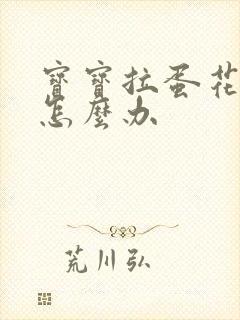 寶寶拉蛋花
怎麼办
荒川弘